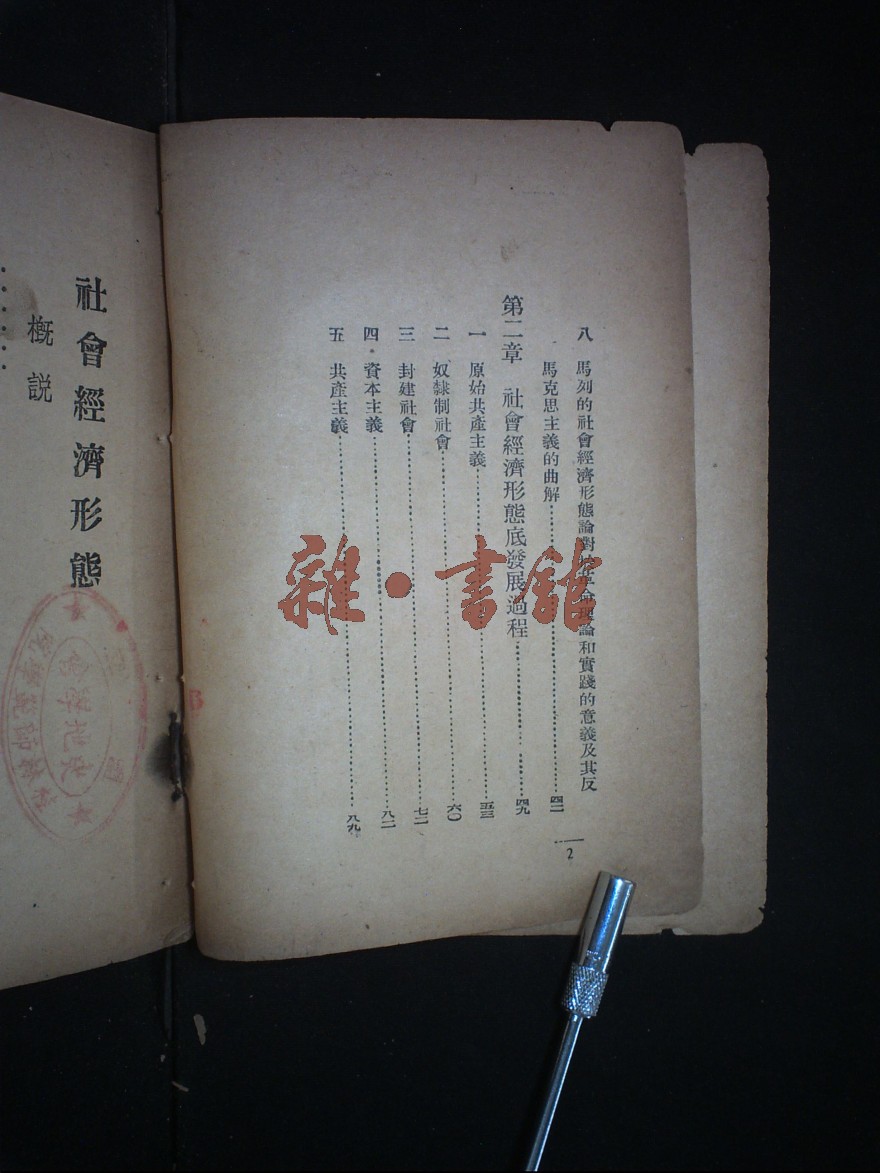 八 馬列的社會經濟形態論對於革命理論和實踐的意義及其反
馬克思主義的曲解……四二
第二章 社會經濟形態底發展過程……四九
一 原始共產主義……五三
二 奴隸制社會……六〇
三 封建社會……七二
四 資本主義……八二
五 共產主義……八九
2
社會經濟形態
概説
雜·書館